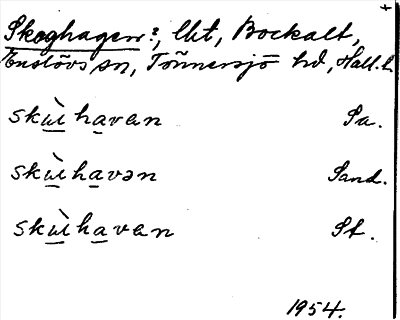 +
Skoghagen?, lht, Bockalt,
Enslövs sn, Tönnersjö hd, Hall. l.
skùhavan Sa.
skùhavən Sand.
skùhavan St.
1954.